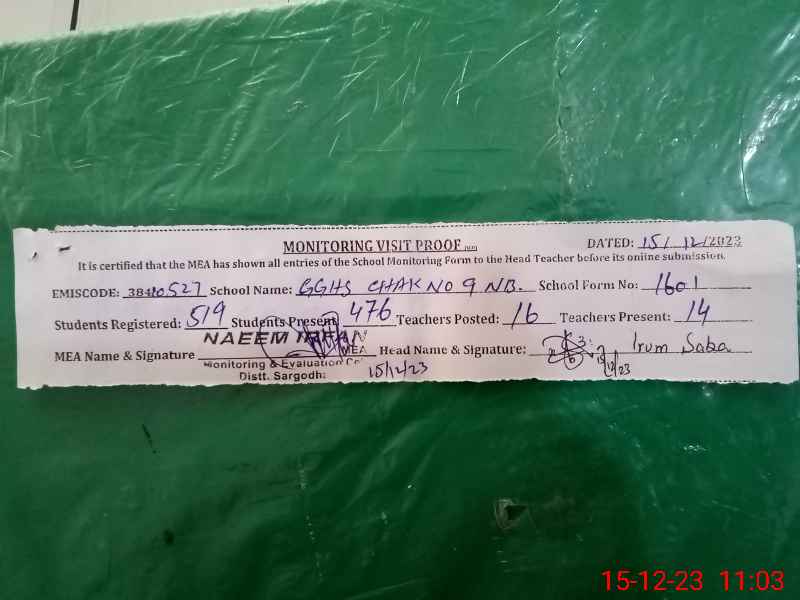 MONITORING VISIT PROOF
DATED: 15/ 12/2023
It is certified that the MEA has shown all entries of the School Monitoring Form to the Head Teacher before its online submission.
EMISCODE: 38410527 School Name: GGHS CHAK NO 9 NB. School Form No: 1601
Students Registered: 519 Students Present 476 Teachers Posted: 16 Teachers Present: 14
NAEEM IRFAN
MEA Name & Signature MEA Head Name & Signature: Irum Saba
Monitoring & Evaluation 15/12/23 15/12/23
Distt. Sargodh:
15-12-23 11:03